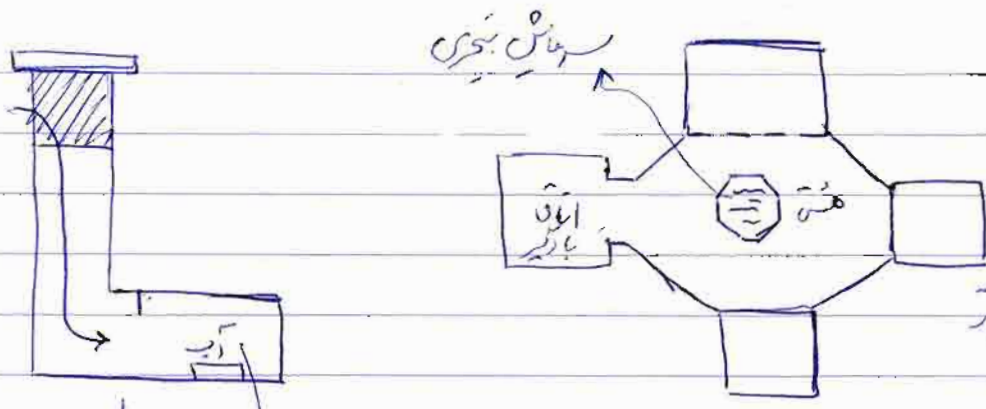 سرمایش تبخیری
اتاق
بادگیر
آب